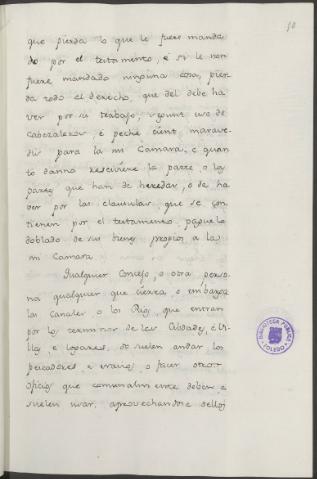 10
que pierda lo que le fuere manda
do por el testamento, é si le non
fuere mandado ninguna cosa, pier
da todo el derecho, que del debe ha
ver por su trabajo, segunt uso de
Cabezaleros, é peche cient marave
dis para la mi Camara, é quan
to danno resciviere la parte, o las
partes que han de heredar, o de ha
ver por las clausulas que se con
tienen por el testamento, paguelo
doblado de sus bienes propios a la
mi Camara.
Qualquier Concejo, o otra perso
na qualquier que cierra, o embarga
los Canales, o los Rios, que entran
por los terminos de las Cibdades, é Vi
llas, é logares, do suelen andar los
pescadores, e navios, o facer otros
oficios que comunalmiente deben, e
suelen usar, aprovechandose dellos
BIBLIOTECA PUBLICA
TOLEDO